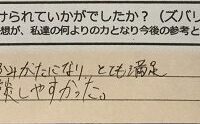 けられていかがでしたか？（ズバリ
想が、私達の何よりの力となり今後の参考と
がたになり とても満足
談しやすかった。